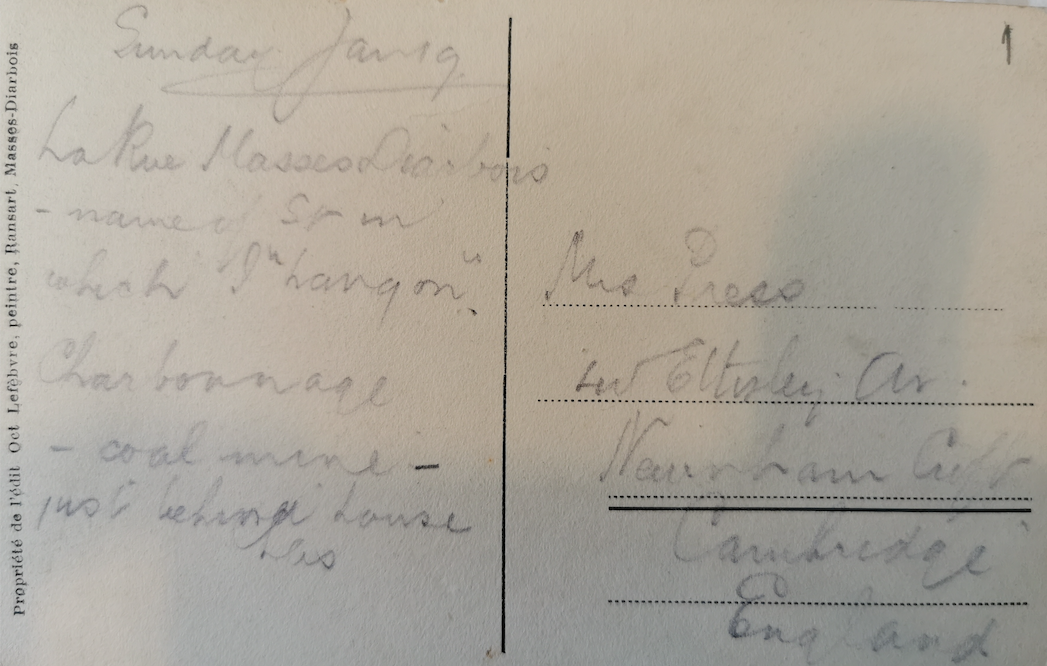 Propriété de l'édit Oct Lefèbvre, peintre, Ransart, Masses-Diarbois
Sunday Jan 19
La Rue Masses Diarbois
- name of St in
which I "hang on".
Charbonnage
- coal mine -
just behind house
Les
1
Mrs Press
Eltisley Av.
Newnham Croft
Cambridge
England